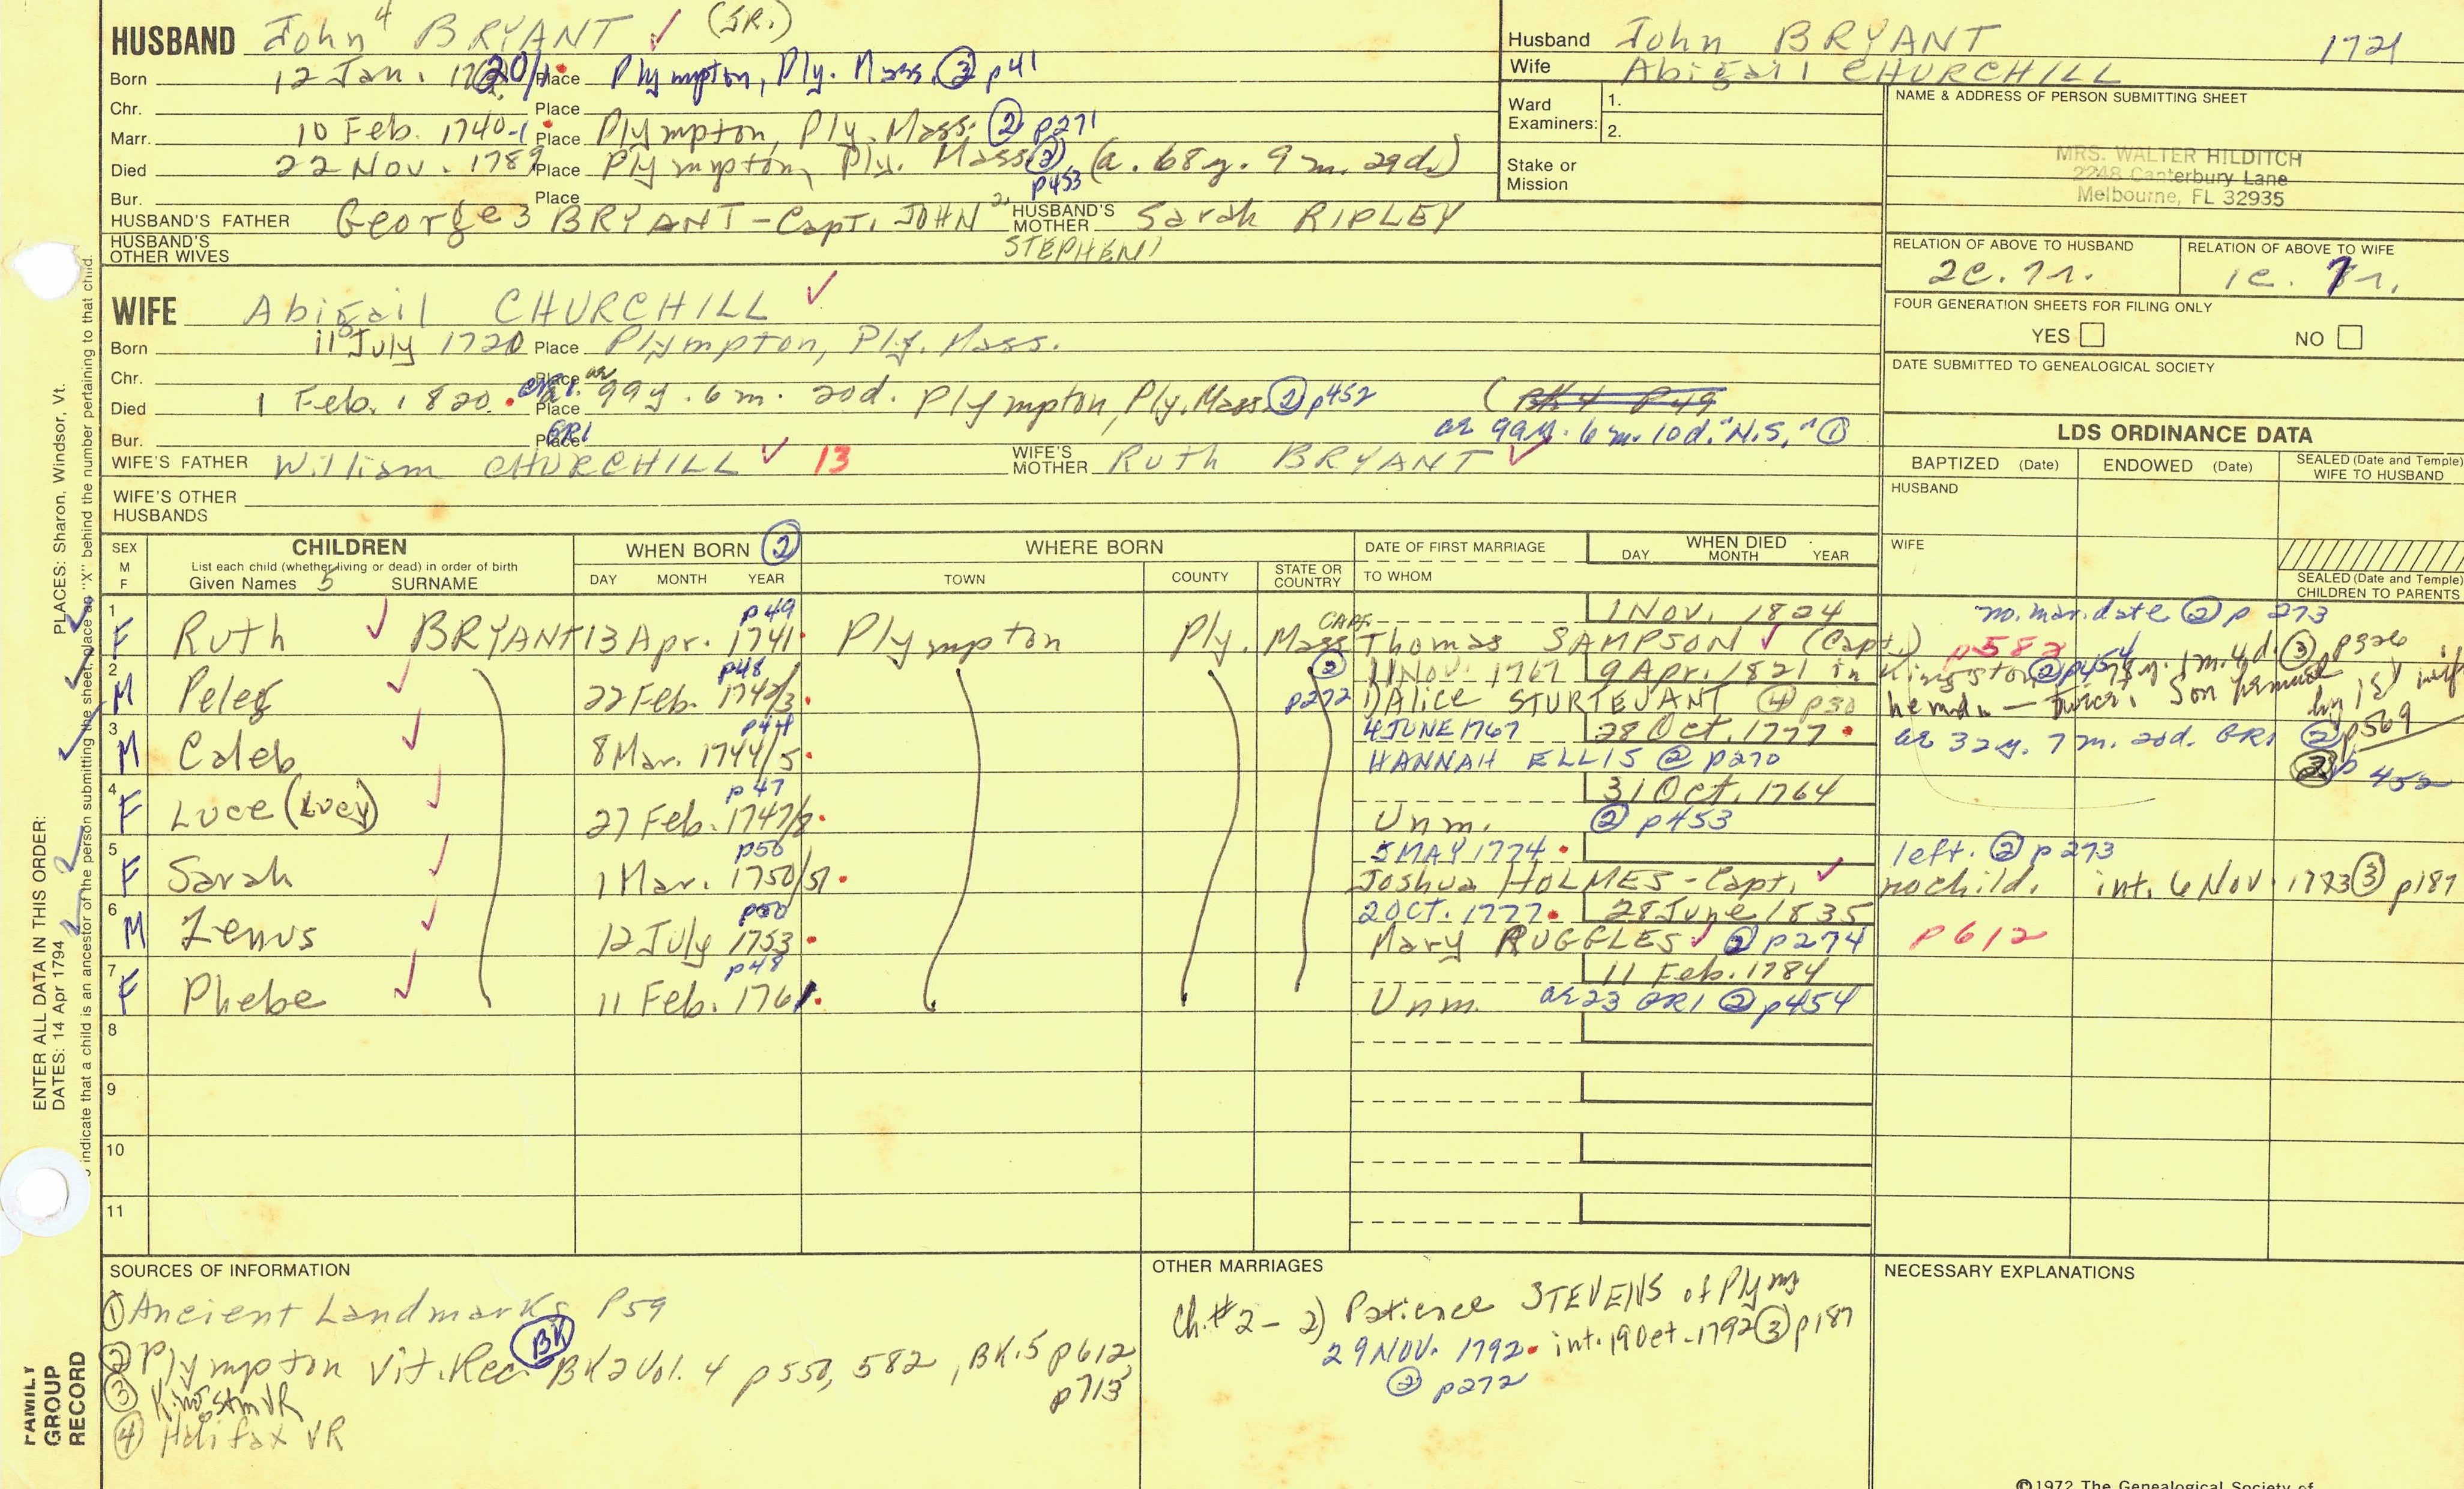 HUSBAND John 4 BRYANT ✓ (SR.)
Born 12 Jan. 1720/1 Place Plympton, Ply. Mass. ② p41
Chr. Place
Marr. 10 Feb. 1740-1 Place Plympton, Ply. Mass. ② p271
Died 22 Nov. 1789 Place Plympton, Ply. Mass. ② p453 (a. 68y. 9m. 29d.)
Bur. Place
HUSBAND'S FATHER George 3 BRYANT - Capt. JOHN 2, STEPHEN 1 HUSBAND'S MOTHER Sarah RIPLEY
HUSBAND'S OTHER WIVES
WIFE Abigail CHURCHILL ✓
Born 11 July 1720 Place Plympton, Ply. Mass.
Chr. Place
Died 1 Feb. 1820. Place ae 99y. 6m. 20d. Plympton, Ply. Mass. ② p452 (Bk 4 P49
Bur. Place GR1 ae 99y. 6m. 10d. "N.S." ①
WIFE'S FATHER William CHURCHILL ✓ 13 WIFE'S MOTHER Ruth BRYANT ✓
WIFE'S OTHER HUSBANDS
Husband John BRYANT 1721
Wife Abigail CHURCHILL
Ward Examiners: 1.
2.
Stake or Mission
NAME & ADDRESS OF PERSON SUBMITTING SHEET
MRS. WALTER HILDITCH
2248 Canterbury Lane
Melbourne, FL 32935
RELATION OF ABOVE TO HUSBAND RELATION OF ABOVE TO WIFE
2c. 7r. 1c. 7r.
FOUR GENERATION SHEETS FOR FILING ONLY
YES NO
DATE SUBMITTED TO GENEALOGICAL SOCIETY
LDS ORDINANCE DATA
BAPTIZED (Date) ENDOWED (Date) SEALED (Date and Temple) WIFE TO HUSBAND
HUSBAND
WIFE
SEALED (Date and Temple) CHILDREN TO PARENTS
SEX M F CHILDREN List each child (whether living or dead) in order of birth Given Names 5 SURNAME
WHEN BORN ② DAY MONTH YEAR
WHERE BORN TOWN COUNTY STATE OR COUNTRY
DATE OF FIRST MARRIAGE TO WHOM
WHEN DIED DAY MONTH YEAR
1 F Ruth ✓ BRYANT 13 Apr. 1741 p49 Plympton Ply. Mass CAPT. 1 Nov. 1824
Thomas SAMPSON ✓ (Capt.) p582 no. mar. date ② p 273
2 M Peleg ✓ 22 Feb. 1742/3 p48 ② p272 11 Nov. 1767 9 Apr. 1821 in Kingston ② p454 78y. 1m. 4d. ③ p326
1) Alice STURTEVANT ④ p30 he md. — twice. Son by 1st wife p569
3 M Caleb ✓ 8 Mar. 1744/5 p44 4 JUNE 1767 28 Oct. 1777
HANNAH ELLIS ② p270 ae 32y. 7m. 20d. GR1 ② p 452
4 F Luce (Lucy) ✓ 27 Feb. 1747/8 p47 31 Oct. 1764
Unm. ② p453
5 F Sarah ✓ 1 Mar. 1750/51 p50 5 MAY 1774 left. ② p273
Joshua HOLMES - Capt. ✓ no child. int. 6 Nov. 1773 ③ p187
6 M Zenus ✓ 12 July 1753 p50 2 OCT. 1777 28 June 1835
Mary RUGGLES ✓ ② p274 p612
7 F Phebe ✓ 11 Feb. 1761 p48 11 Feb. 1784
Unm. ae 23 GR1 ② p454
8
9
10
11
SOURCES OF INFORMATION
① Ancient Landmarks P59
② Plympton Vit. Rec. BK Bk 2 Vol. 4 p550, 582, BK. 5 p612, p713
③ Kingston VR
④ Halifax VR
OTHER MARRIAGES
Ch. #2 - 2) Patience STEVENS of Plym
29 NOV. 1792. int. 19 Oct. 1792 ③ p187
② p272
NECESSARY EXPLANATIONS
©1972 The Genealogical Society of
PLACES: Sharon, Windsor, Vt.
ENTER ALL DATA IN THIS ORDER:
DATES: 14 Apr 1794
indicate that a child is an ancestor of the person submitting the sheet, place an "X" behind the number pertaining to that child.
FAMILY GROUP RECORD